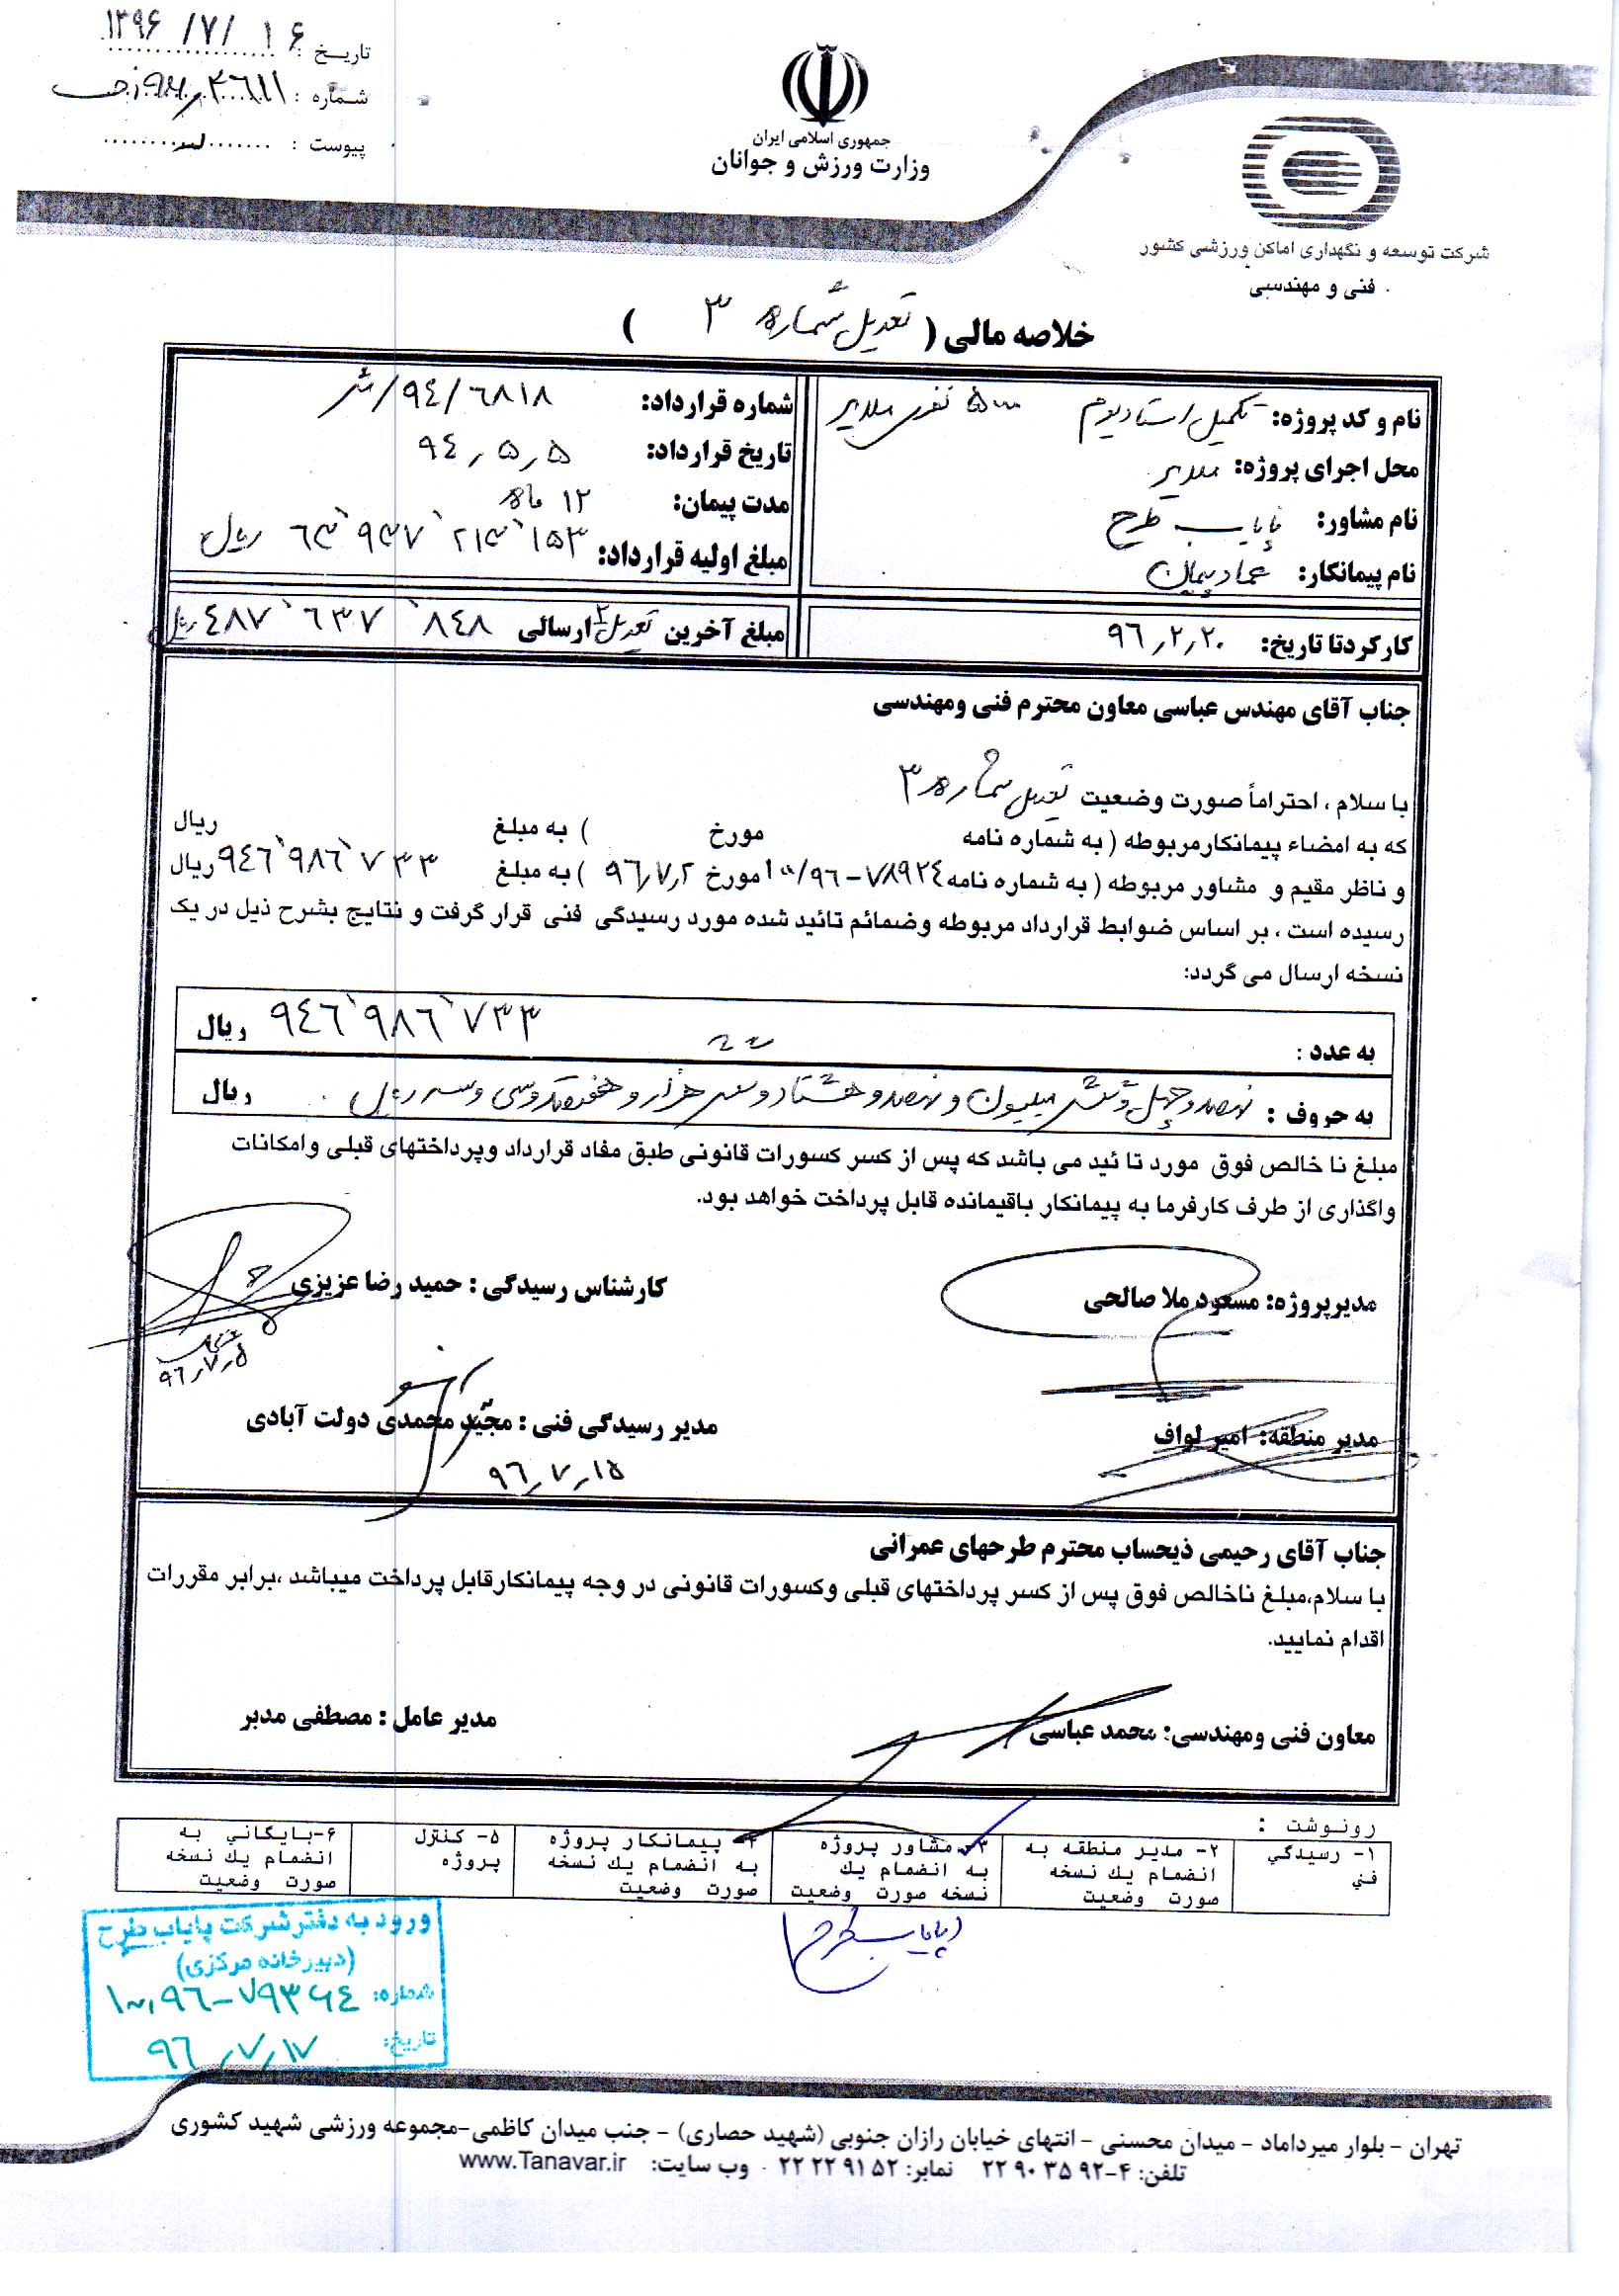 تاریخ : ۱۳۹۶/۷/۱۶
شماره :
پیوست :
جمهوری اسلامی ایران
وزارت ورزش و جوانان
شرکت توسعه و نگهداری اماکن ورزشی کشور
فنی و مهندسی
خلاصه مالی ( تعدیل شماره ۳ )
نام و کد پروژه: تکمیل استادیوم ۵۰۰۰ نفری ملایر
محل اجرای پروژه: ملایر
نام مشاور: پایاب طرح
نام پیمانکار: عماد پیمان
شماره قرارداد: ۹۴/۶۸۱۸/ش
تاریخ قرارداد: ۹۴٫۵٫۵
مدت پیمان: ۱۲ ماه
مبلغ اولیه قرارداد: ۶۳٬۹۳۷٬۲۱۳٬۱۵۳ ریال
کارکردتا تاریخ: ۹۶٫۲٫۲۰
مبلغ آخرین تعدیل ۲ ارسالی ۴۸۷٬۶۳۷٬۸۴۸ ریال
جناب آقای مهندس عباسی معاون محترم فنی ومهندسی
با سلام ، احتراماً صورت وضعیت تعدیل شماره ۳
که به امضاء پیمانکارمربوطه ( به شماره نامه مورخ ) به مبلغ ریال
و ناظر مقیم و مشاور مربوطه ( به شماره نامه ۱۰۰/۹۶-۷۸۹۲۴ مورخ ۹۶٫۷٫۲ ) به مبلغ ۹۴۶٬۹۸۶٬۷۳۳ ریال
رسیده است ، بر اساس ضوابط قرارداد مربوطه وضمائم تائید شده مورد رسیدگی فنی قرار گرفت و نتایج بشرح ذیل در یک
نسخه ارسال می گردد:
به عدد : ۹۴۶٬۹۸۶٬۷۳۳ ریال
به حروف : نهصد و چهل و شش میلیون و نهصد و هشتاد و شش هزار و هفتصد و سی و سه ریال ریال
مبلغ نا خالص فوق مورد تا ئید می باشد که پس از کسر کسورات قانونی طبق مفاد قرارداد وپرداختهای قبلی وامکانات
واگذاری از طرف کارفرما به پیمانکار باقیمانده قابل پرداخت خواهد بود.
مدیرپروژه: مسعود ملا صالحی
کارشناس رسیدگی : حمید رضا عزیزی
۹۶٫۷٫۵
مدیر منطقه: امیر لواف
مدیر رسیدگی فنی : مجید محمدی دولت آبادی
۹۶٫۷٫۱۵
جناب آقای رحیمی ذیحساب محترم طرحهای عمرانی
با سلام،مبلغ ناخالص فوق پس از کسر پرداختهای قبلی وکسورات قانونی در وجه پیمانکارقابل پرداخت میباشد ،برابر مقررات
اقدام نمایید.
معاون فنی ومهندسی: محمد عباسی
مدیر عامل : مصطفی مدبر
رونوشت :
۱- رسیدگي فني
۲- مدیر منطقه به انضمام یك نسخه صورت وضعیت
۳- مشاور پروژه به انضمام یك نسخه صورت وضعیت
۴- پیمانکار پروژه به انضمام یك نسخه صورت وضعیت
۵- کنترل پروژه
۶-بایگاني به انضمام یك نسخه صورت وضعیت
پایاب طرح
ورود به دفتر شرکت پایاب طرح
(دبیرخانه مرکزی)
شماره: ۱۰۰٫۹۶-۷۹۳۶۴
تاریخ: ۹۶٫۷٫۱۷
تهران - بلوار میرداماد - میدان محسنی - انتهای خیابان رازان جنوبی (شهید حصاری) - جنب میدان کاظمی-مجموعه ورزشی شهید کشوری
تلفن: ۴-۹۲ ۳۵ ۹۰ ۲۲ نمابر: ۵۲ ۹۱ ۲۲ ۲۲ وب سایت: www.Tanavar.ir